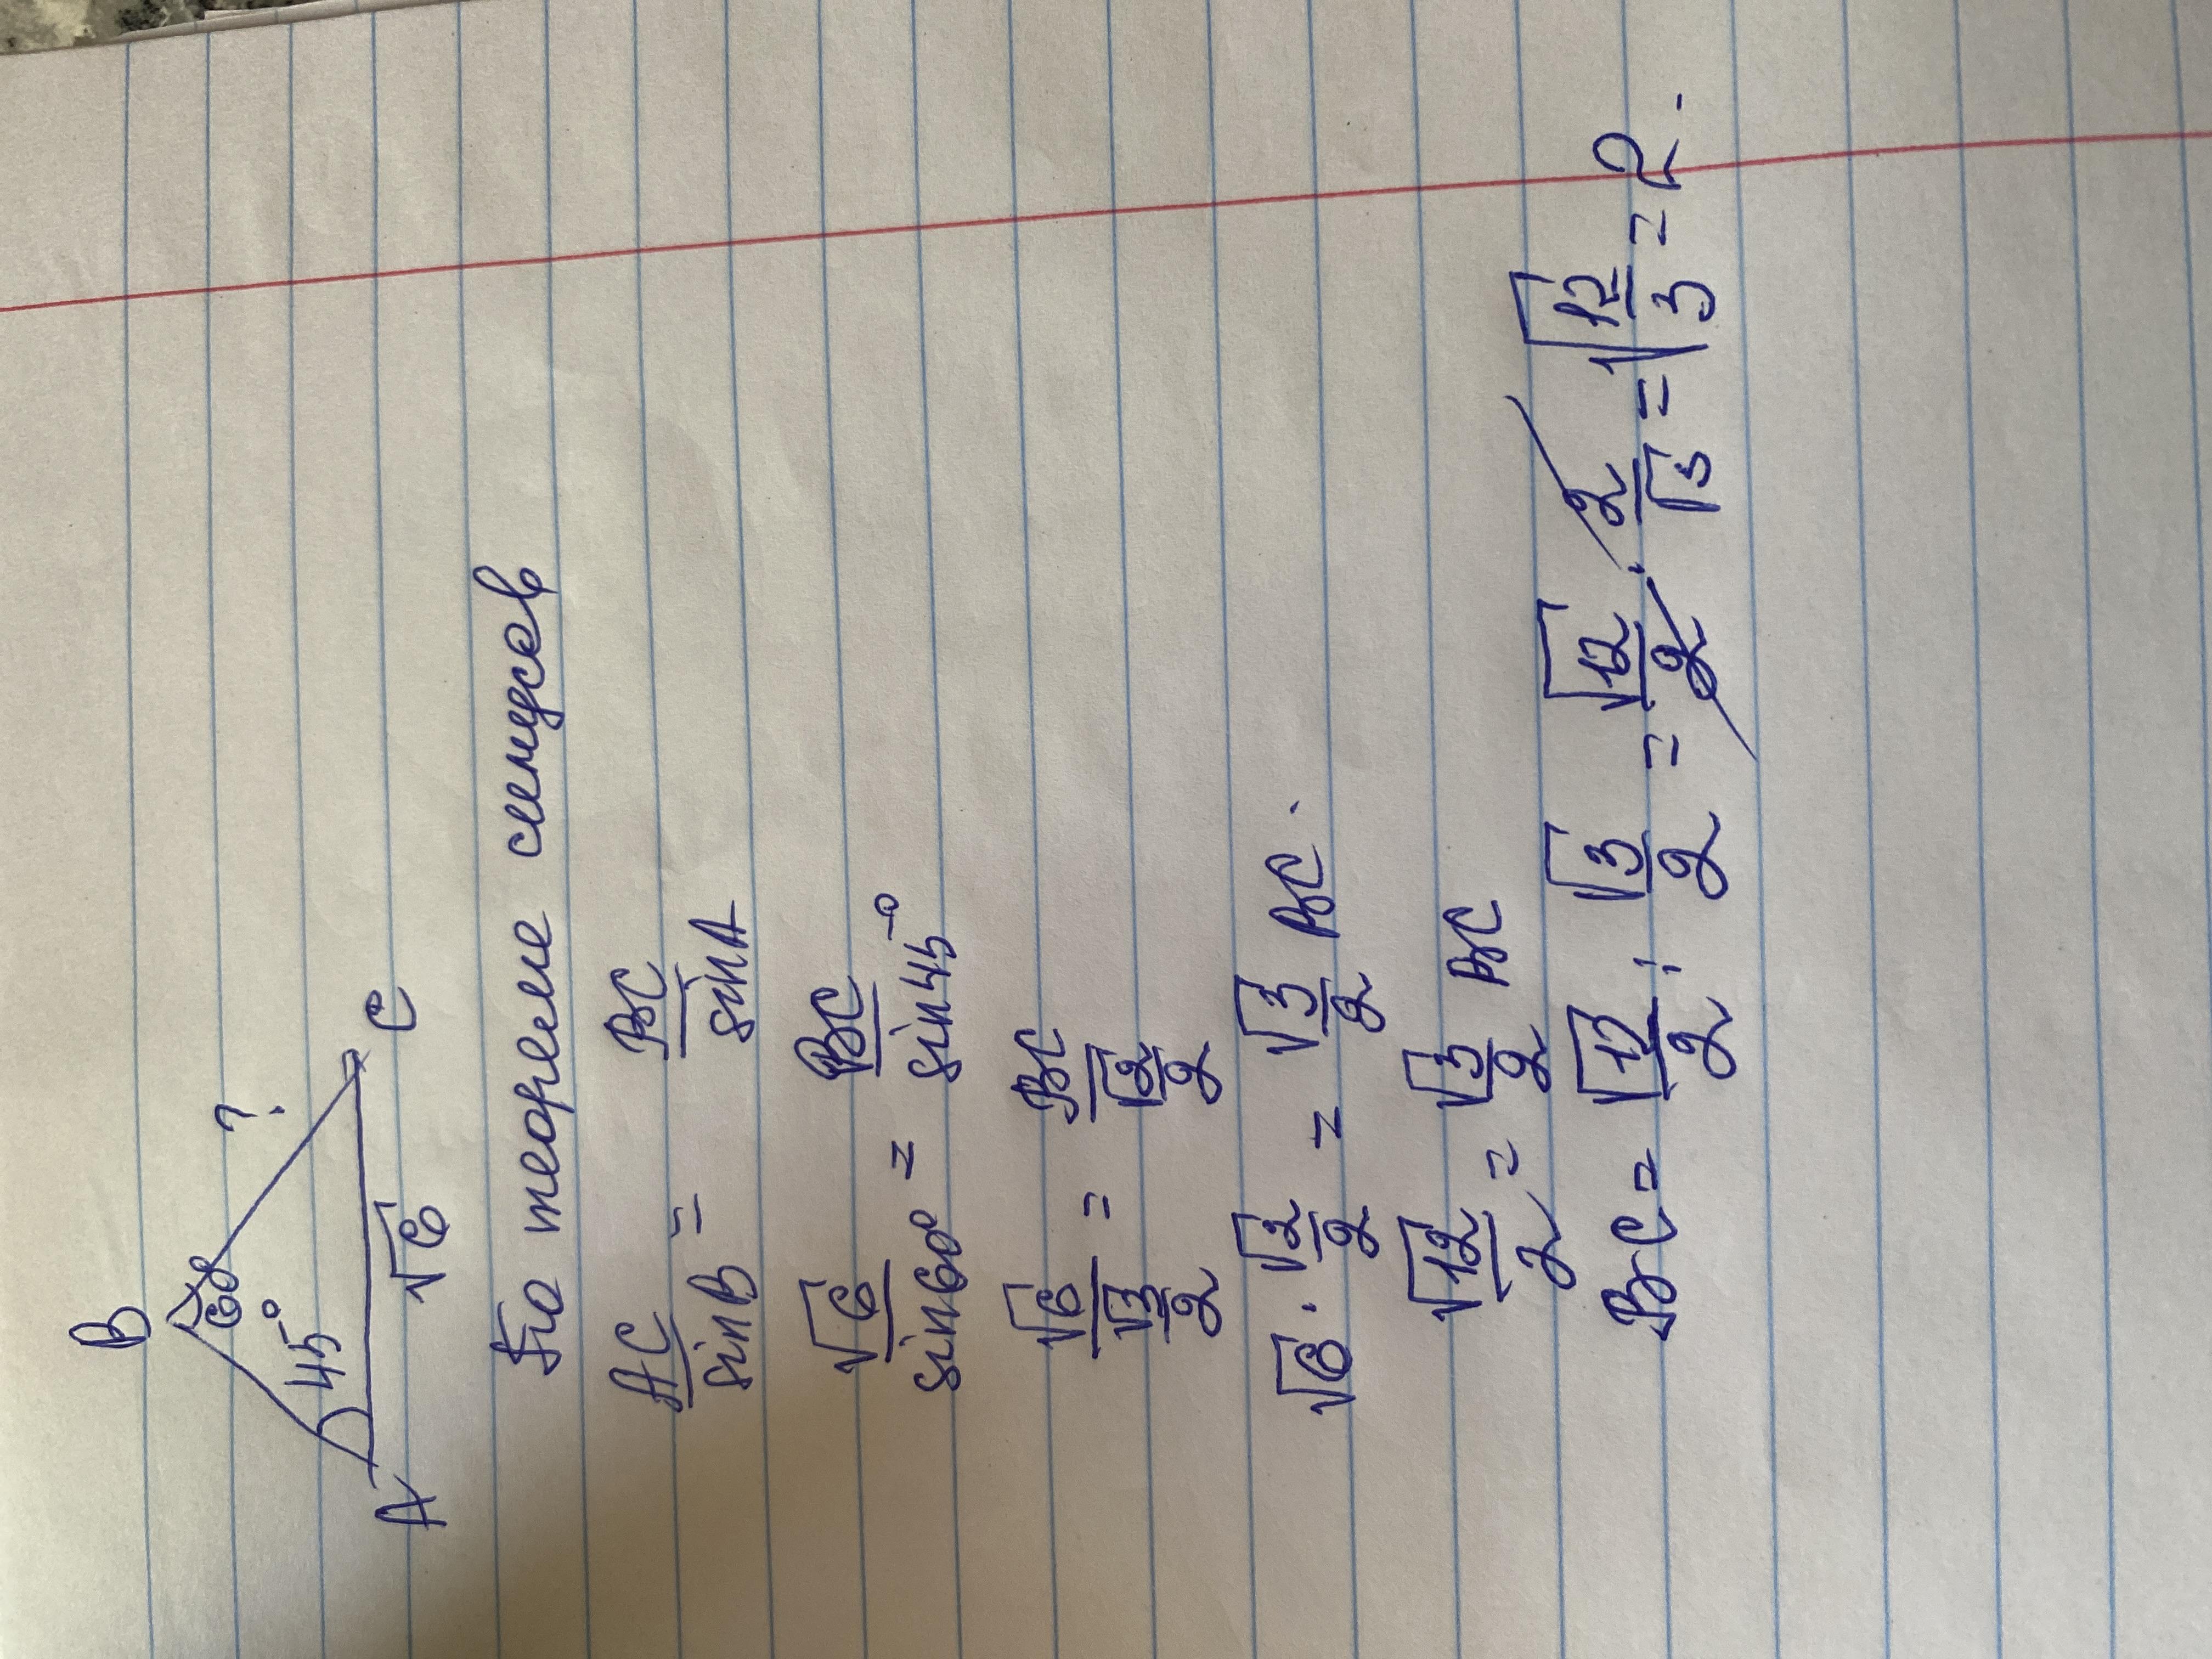 B
60°
?
45°
A
C
√6
По теореме синусов
AC/sin B = BC/sin A
√6/sin 60° = BC/sin 45°
√6/(√3/2) = BC/(√2/2)
√6 · √2/2 = √3/2 BC.
√12/2 = √3/2 BC
BC = √12/2 : √3/2 = √12/2 · 2/√3 = √(12/3) = 2.